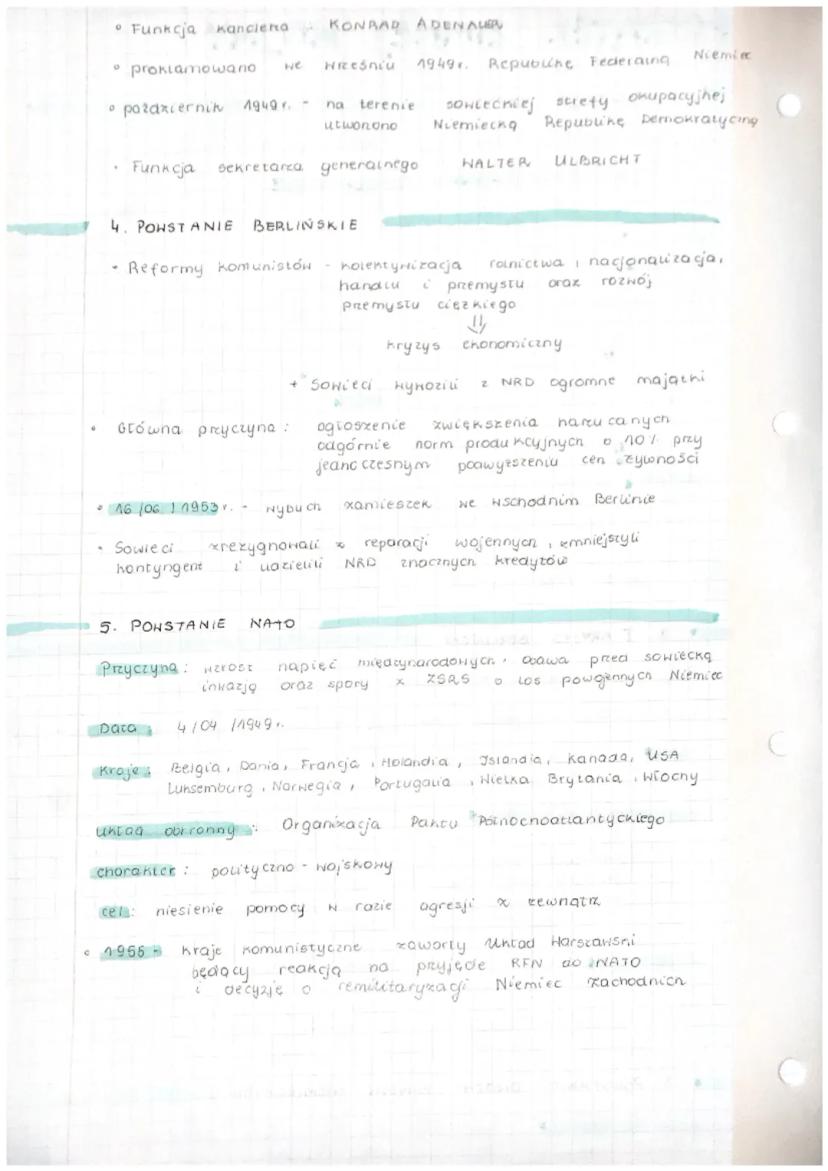 • Funkcja kanclerza : KONRAD ADENAUER
• proklamowano we wrześniu 1949r. Republikę Federalną Niemiec
• październik 1949 r. - na terenie sowieckiej strefy okupacyjnej
utworzono Niemiecką Republikę Demokratyczną
• Funkcja sekretarza generalnego WALTER ULBRICHT
4. POWSTANIE BERLIŃSKIE
• Reformy komunistów - kolektywizacja rolnictwa i nacjonalizacja,
handlu i przemysłu oraz rozwój
przemysłu ciężkiego
⇓
kryzys ekonomiczny
+ Sowieci wywozili z NRD ogromne majątki
• Główna przyczyna : ogłoszenie zwiększenia narzucanych
odgórnie norm produkcyjnych o 10% przy
jednoczesnym podwyższeniu cen żywności
• 16/06/1953r. - wybuch zamieszek we wschodnim Berlinie
• Sowieci zrezygnowali z reparacji wojennych, zmniejszyli
kontyngent i udzielili NRD znacznych kredytów
5. POWSTANIE NATO
Przyczyna : wzrost napięć międzynarodowych, obawa przed sowiecką
inwazją oraz spory z ZSRS o los powojennych Niemiec
Data : 4/04/1949r.
Kraje : Belgia, Dania, Francja, Holandia, Islandia, Kanada, USA
Luksemburg, Norwegia, Portugalia, Wielka Brytania, Włochy
układ obronny : Organizacja Paktu Północnoatlantyckiego
charakter : polityczno - wojskowy
cel : niesienie pomocy w razie agresji z zewnątrz
• 1955 - kraje komunistyczne zawarły Układ Warszawski
będący reakcją na przyjęcie RFN do NATO
i decyzję o remilitaryzacji Niemiec Zachodnich